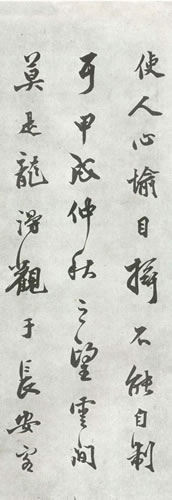 使人心愉目不能自制
耳甲戌仲秋之望雲間
莫是龍得觀于長安客